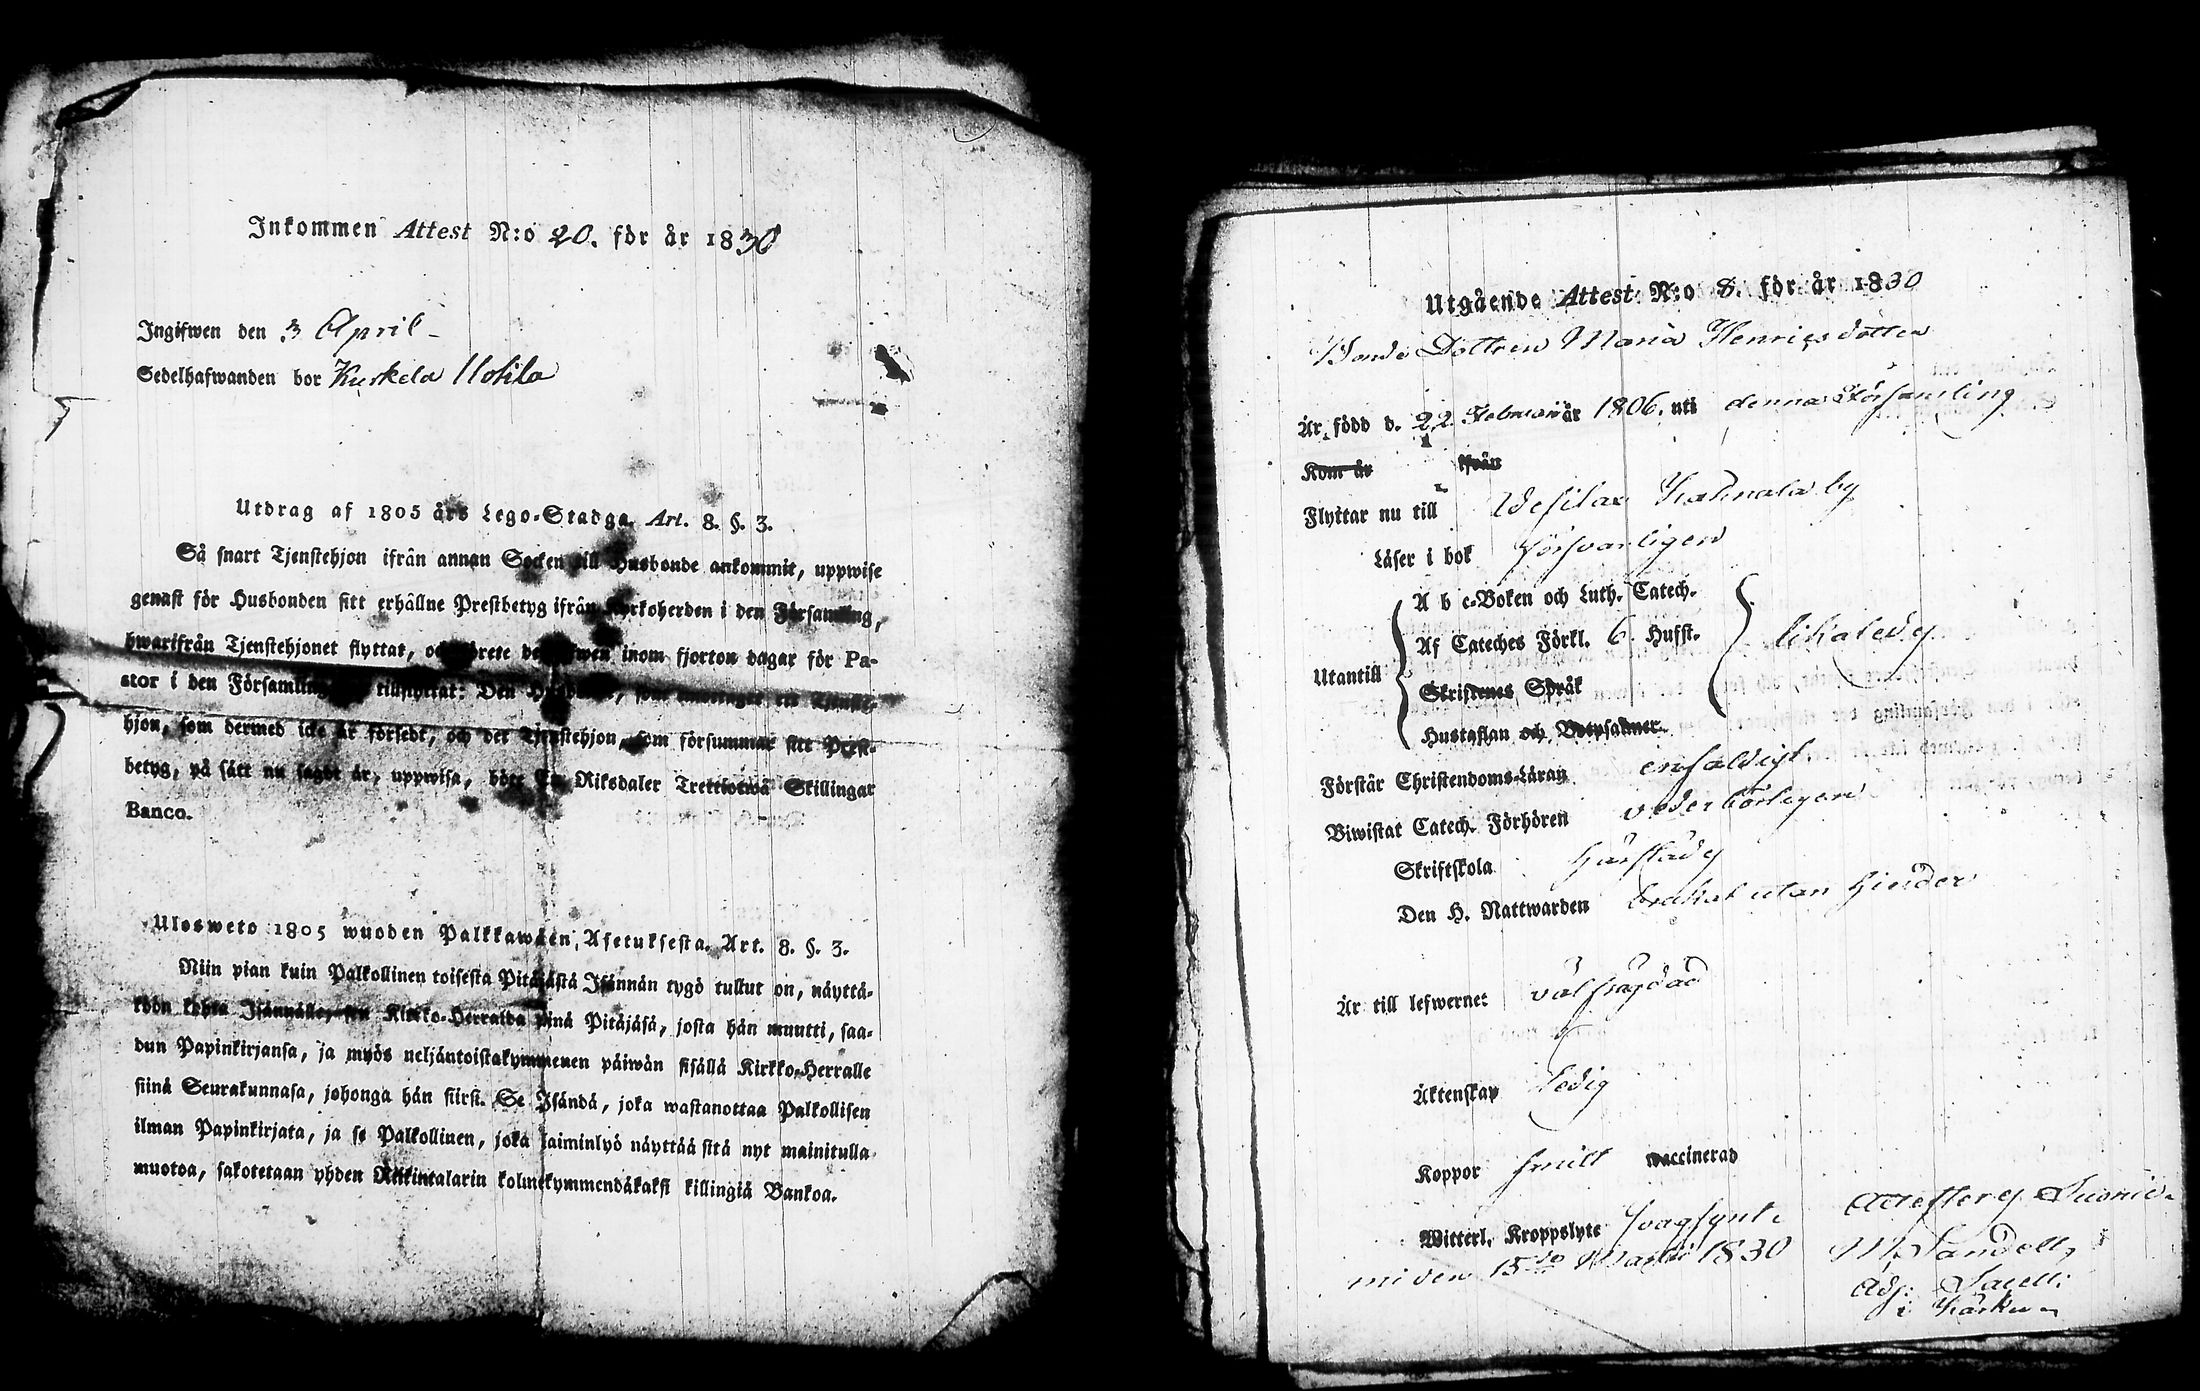 Inkommen Attest N:o 20. för år 1830
Ingifwen den 3 April
Sedelhafwanden bor Kurkela Uotila
Utdrag af 1805 års Lego-Stadga. Art. 8. §. 3.
Så snart Tjenstehjon ifrån annan Socken till Husbonde ankommit, uppwise
genast för Husbonden sitt erhållne Prestbetyg ifrån Kyrkoherden i den Församling,
hwarifrån Tjenstehjonet flyttat, och inom fjorton dagar för Pa-
stor i den Församling tillflyttat: Den
hjon, som dermed icke är försedt, och det Tjenstehjon, som försummar sitt Prest-
betyg, på sätt nu sagdt är, uppwisa, böte En Riksdaler Trettiotwå Skillingar
Banco.
Ulosweto 1805 wuoden Palkkawäen Asetuksesta. Art. 8. §. 3.
Niin pian kuin Palkollinen toisesta Pitäjästä Isännän tygö tullut on, näyttä-
köön Isännälle, sen Kirkko-Herralda siinä Pitäjäsä, josta hän muutti, saa-
dun Papinkirjansa, ja myös neljäntoistakymmenen päiwän sisällä Kirkko-Herralle
siinä Seurakunnasa, johonga hän siirst. Se Isändä, joka wastanottaa Palkollisen
ilman Papinkirjata, ja se Palkollinen, joka laiminlyö näyttää sitä nyt mainitulla
muotoa, sakotetaan yhden Riikintalarin kolmekymmendäkaksi killingiä Bankoa.
Utgående Attest N:o 8. för år 1830
Bonde Dottren Maria Henricsdotter
Är född d. 22 Februari år 1806. uti denna Församling
Kom år ifrån
Flyttar nu till by
Läser i bok försvarligen
A b c-Boken och Luth. Catech.
Af Cateches Förkl. 6 Hufst.
Utantill likaledes
Skriftenes Språk
Hustaflan och Botpsalmer.
Förstår Christendoms-Läran enfaldigt.
Biwistat Catech. Förhören vederbörligen
Skriftskola
Den H. Nattwarden brukat utan hinder
Är till lefwernet välfrägdad
Äktenskap ledig
Koppor vaccinerad
Witterl. Kroppslyte svagsynt
den 15 Martii 1830 M. Sandell,
Adj.
i